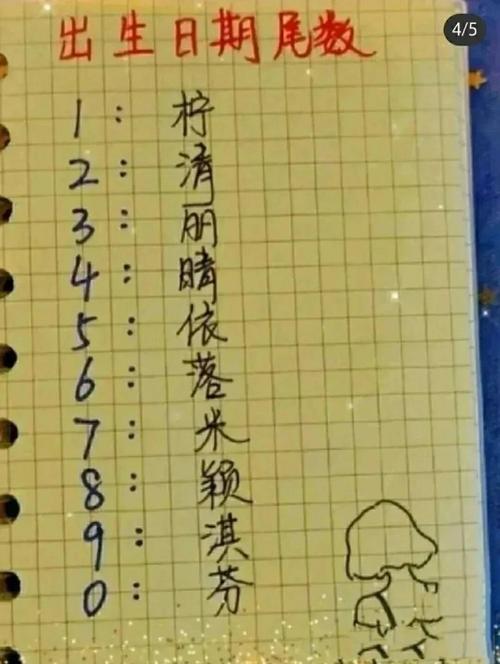 4/5
出生日期尾数
1：柠
2：清
3：丽
4：晴
5：依
6：落
7：米
8：颖
9：淇
0：芬